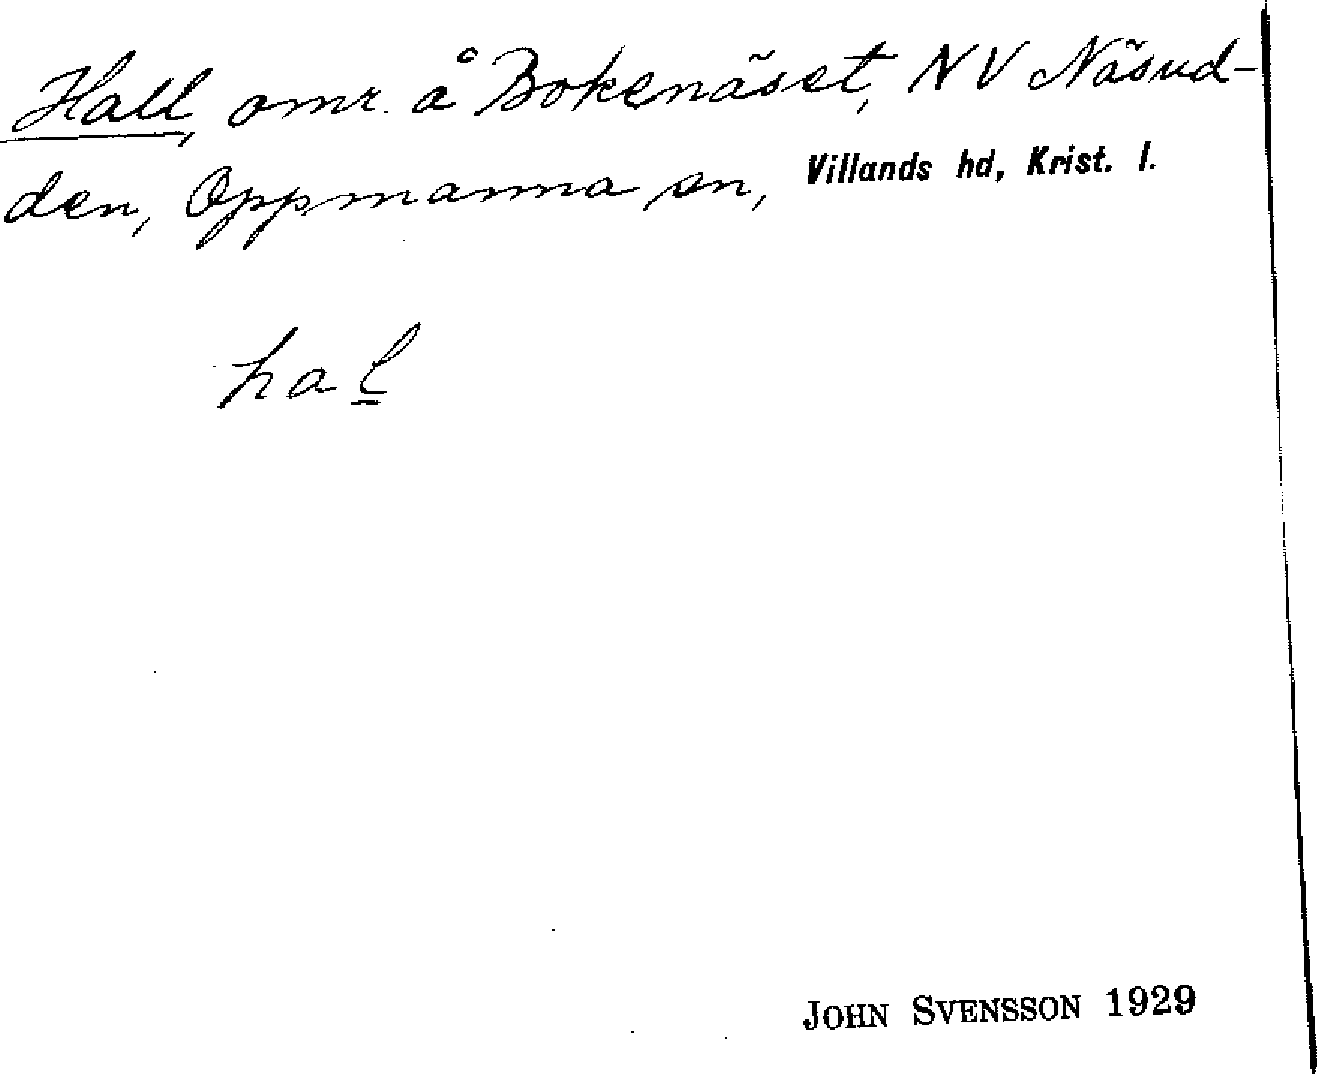 Hall, omr. å Bokenäset, NV Näsud-
den, Oppmanna sn, Villands hd, Krist. l.
hal
JOHN SVENSSON 1929